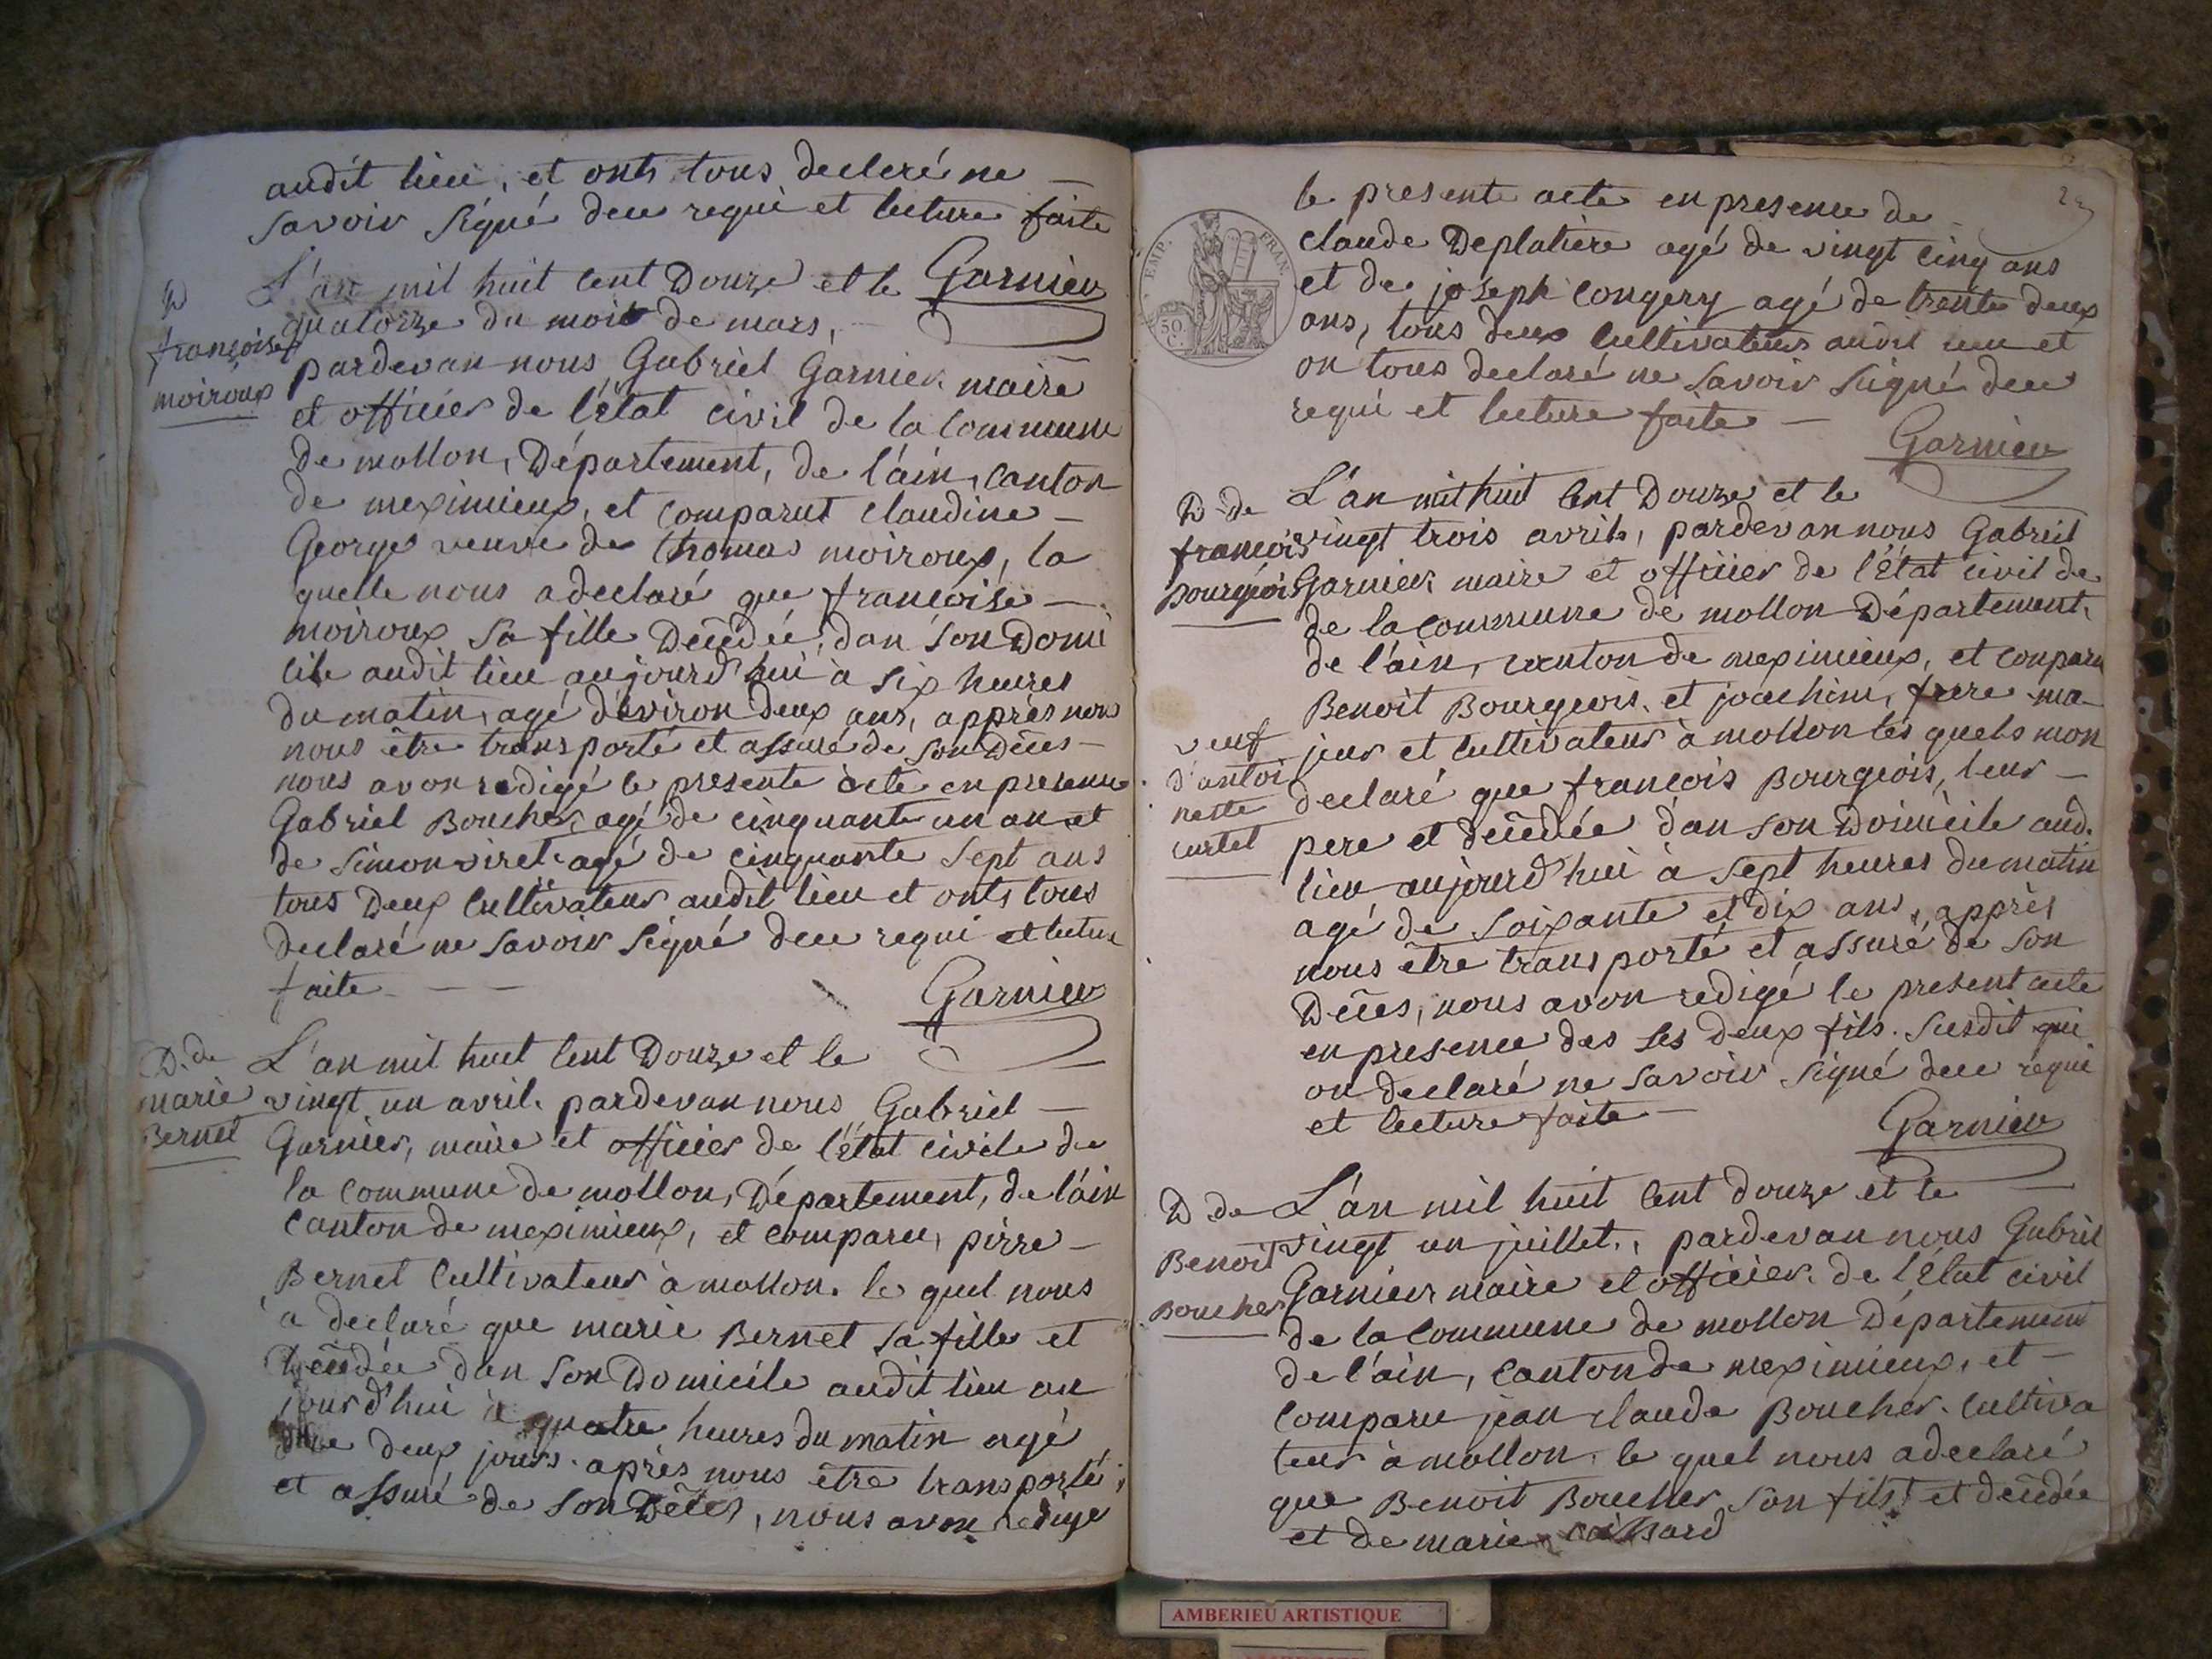 audit lieu, et onts tous declaré ne
savoir signé deu requi et lecture faite
Garnier
D
françoise
moiroux
L'an mil huit cent Douze et le
quatorze du mois de mars,
pardevan nous Gabriel Garnier maire
et officier de l'état civil de la commune
de mollon, Département, de l'ain, canton
de meximieux, et comparut claudine
George veuve de thomas moiroux, la
quelle nous a declaré que françoise
moiroux sa fille Décédée, dan son Domi
cile audit lieu aujourd'hui à six heures
du matin, agé d'éviron deux ans, apprès nous
nous être transporté et assuré de son Déces
nous avon redigé le presente acte en presence
Gabriel Boucher, agé de cinquante un an et
de simon viret agé de cinquante sept ans
tous Deux cultivateur audit lieu et onts tous
declaré ne savoir signé deu requi et lecture
faite
Garnier
D. de
marie
Bernet
L'an mil huit cent Douze et le
vingt un avril. pardevan nous Gabriel
Garnier, maire et officier de l'état civile de
la commune de mollon, Département, de l'ain
canton de meximieux, et comparu, pirre
Bernet cultivateur à mollon. le quel nous
a declaré que marie Bernet sa fille et
Décédée dan son Domicile audit lieu au
jourd'hui à quatre heures du matin agé
de deux jours. après nous être transporté,
et assuré de son Déces, nous avon redigé
23
EMP. FRAN.
50 C.
le presente acte en presence de
claude Deplatiere agé de vingt cinq ans
et de joseph congery agé de trente deux
ans, tous deux cultivateurs audit lieu et
on tous declaré ne savoir signé deu
requi et lecture faite
Garnier
D de
francois
Bourgeois
L'an mil huit cent Douze et le
vingt trois avril, pardevan nous Gabriel
Garnier maire et officier de l'État civil de
de la commune de mollon Département,
de l'ain, canton de meximieux, et conparu
Benoit Bourgeois. et joachim, frere ma
jeur et cultivateur à mollon lés quels mon
declaré que françois Bourgeois, leur
pere et décédée dan son Domicile aud.
lieu aujourd'hui à sept heures du matin
agé de soixante et dix ans, apprès
nous être transporté et assuré de son
Déces, nous avon redigé le present acte
en presence des ses deux fils. susdit qui
on declaré ne savoir signé deu requi
et lecture faite
Garnier
veuf
d'antoi
nette
curtet
D de
Benoit
Boucher
L'an mil huit cent douze et le
vingt un juillet., pardevan nous Gabriel
Garnier maire et officier de l'État civil
de la commune de mollon Département
de l'ain, canton de meximieux, et
comparu jean claude Boucher. cultiva
teur à mollon. le quel nous a declaré
que Benoit Boucher son fils et décédée
et de marie